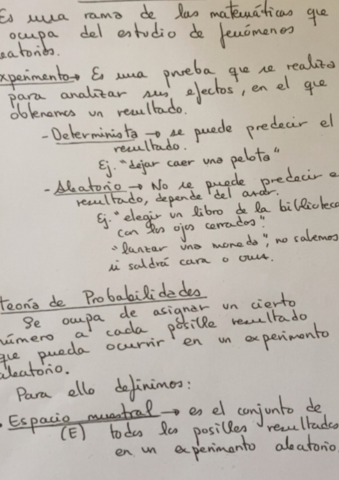 Es una rama de las matemáticas que
ocupa del estudio de fenómenos
eatorios.
xperimento → Es una prueba que se realiza
para analizar sus efectos, en el que
obtenemos un resultado.
- Determinista → se puede predecir el
resultado.
Ej. "dejar caer una pelota"
- Aleatorio → No se puede predecir e
resultado, depende del azar.
Ej. "elegir un libro de la biblioteca
con los ojos cerrados".
"lanzar una moneda", no sabemos
si saldrá cara o cruz.
Teoría de Probabilidades
Se ocupa de asignar un cierto
número a cada posible resultado
que pueda ocurrir en un experimento
aleatorio.
Para ello definimos:
· Espacio muestral → es el conjunto de
(E) todos los posibles resultados
en un experimento aleatorio.